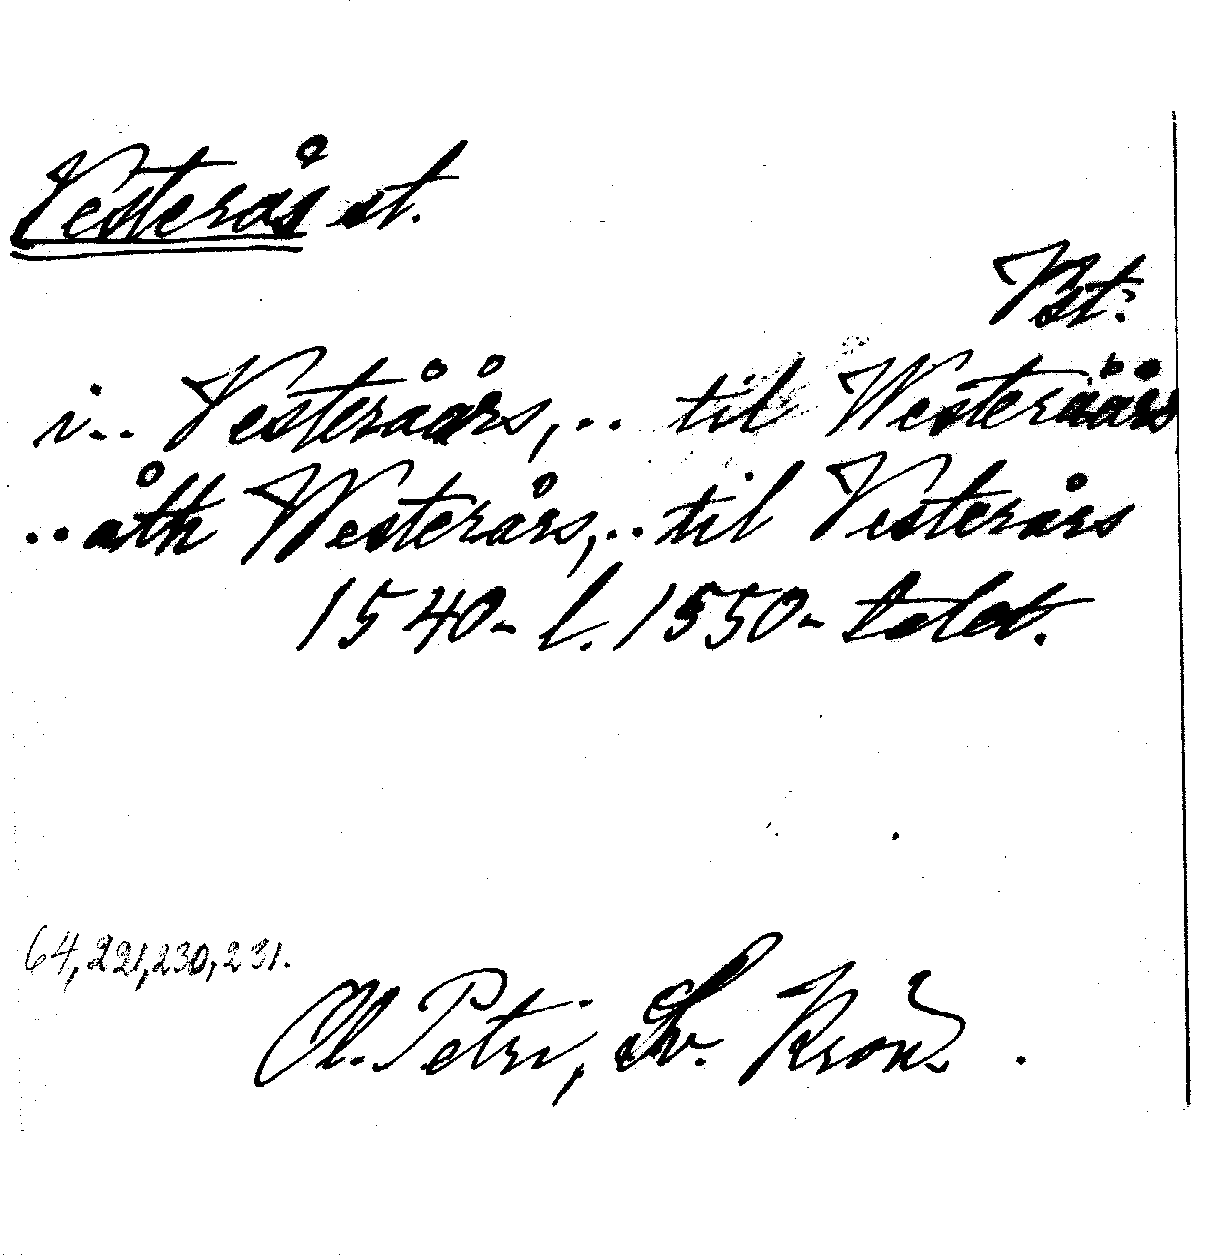 Vesterås st.
Vst.
i... Vesteråårs,... til Westeråårs
.. åth Westerårs,.. til Vesterårs
1540- l. 1550- talet.
64, 221, 230, 231.
Ol. Petri, Sv. Krön.